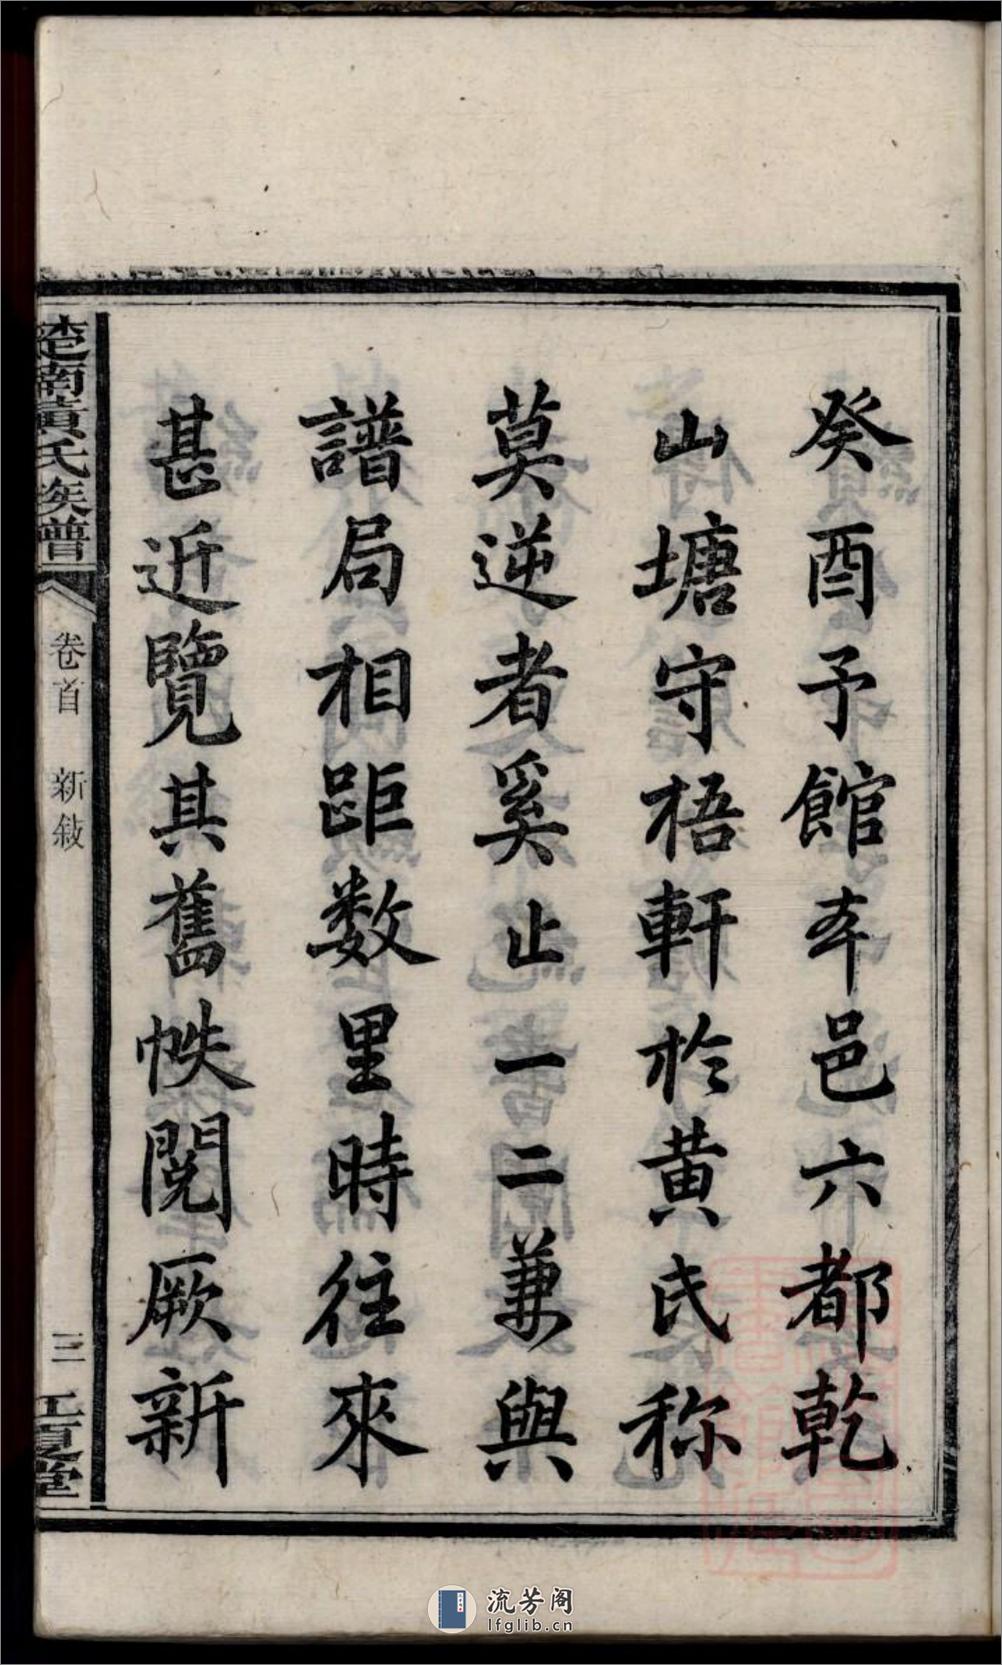 癸酉予館本邑六都乾
山塘守梧軒於黄氏称
莫逆者奚止一二兼與
譜局相距数里時往來
甚近覽其舊帙閱厥新
楚南黃氏族譜
卷首 新敘
三
江夏堂
流芳阁
lfglib.cn